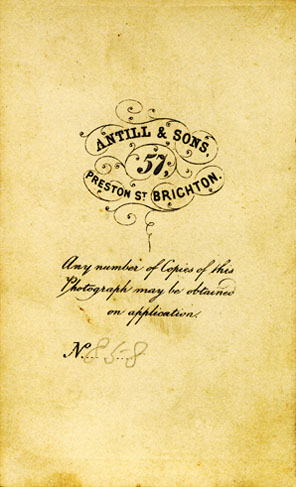 ANTILL & SONS,
57,
PRESTON ST BRIGHTON.
Any number of Copies of this
Photograph may be obtained
on application.
N. 858